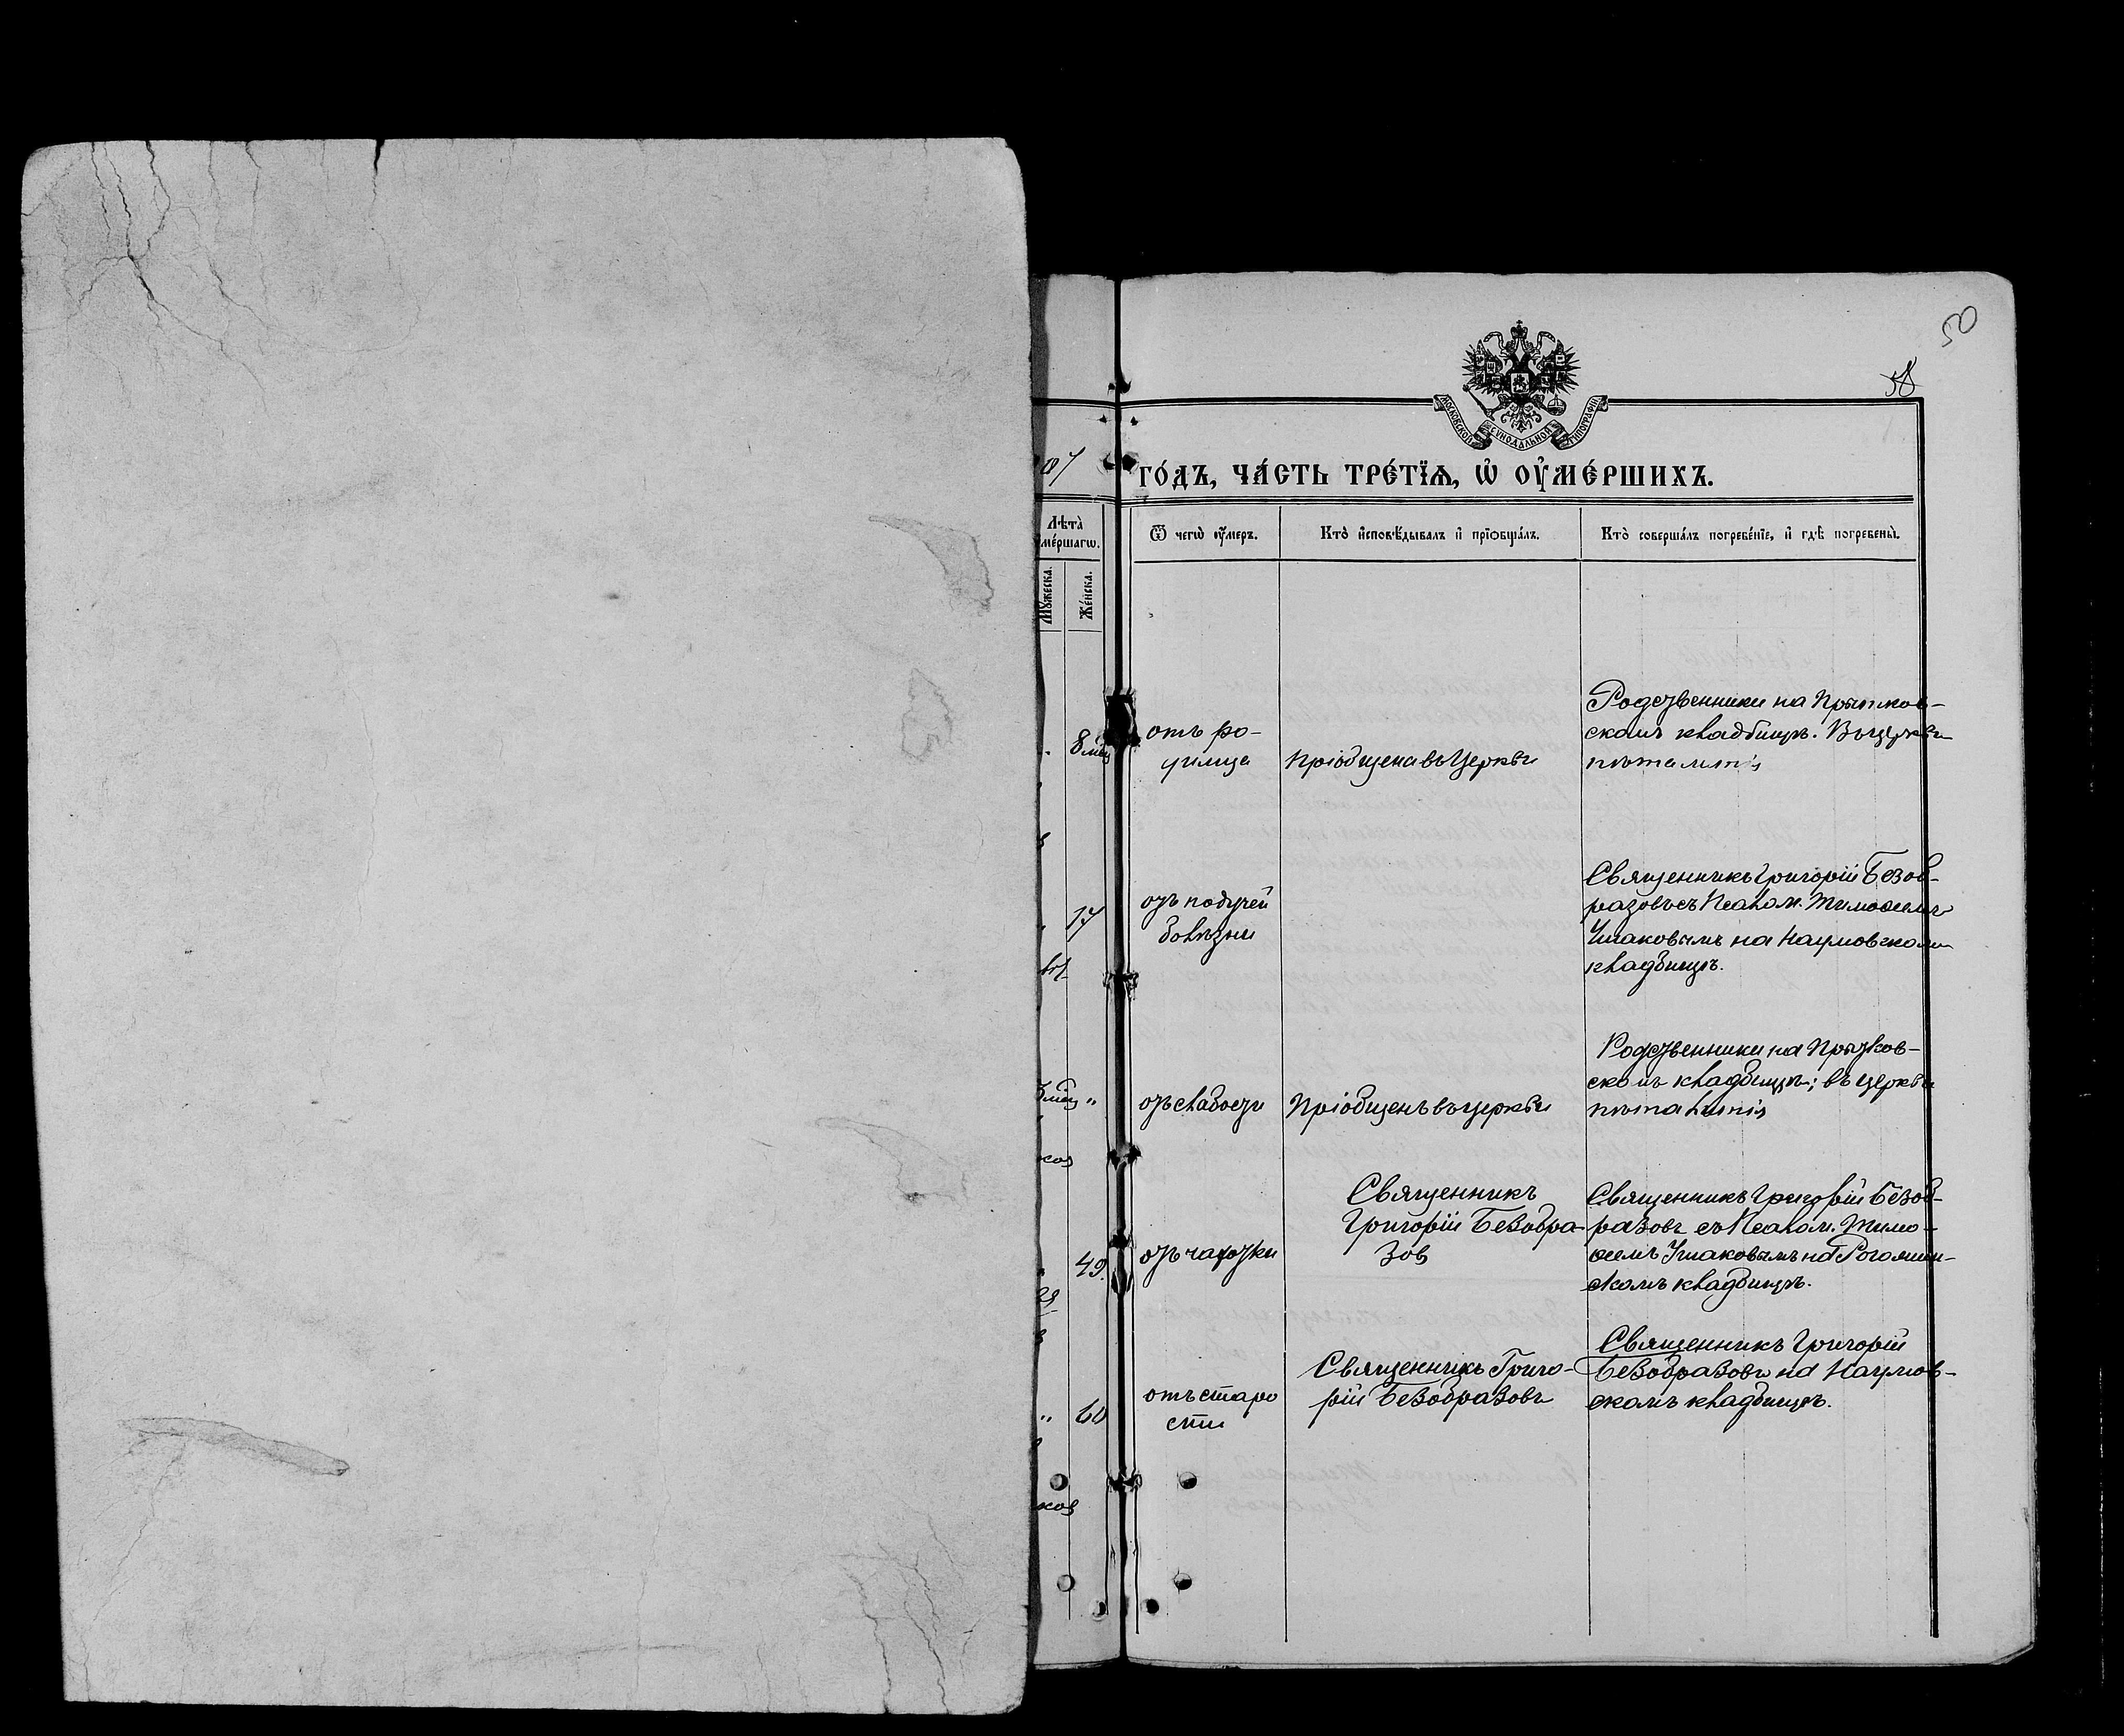 50
МОСКОВСКОЙ СУНОДАЛЬНОЙ ТИПОГРАФІИ
07
го́дъ, ча́сть тре́тїѧ, ѡ҆ оу҆ме́ршихъ.
Лѣта̀
ме́ршагѡ.
Мꙋ́жеска.
Же́нска.
Ѿ чегѡ̀ оу҆́меръ.
Кто̀ и҆сповѣ́дывалъ и҆ прїѻбща́лъ.
Кто̀ соверша́лъ погребе́нїе, и҆ гдѣ̀ погребены̀.
8 мѣс
отъ ро-
Пріобщена въ Церкви
Родственники на Прытков-
скомъ кладбищѣ. Въ церкви
пѣта литія
17
отъ подучей
болѣзни
Священникъ Григорій Безоб-
разовъ съ Псалом. Тимоѳеемъ
Ушаковымъ на Наумовскомъ
кладбищѣ.
мѣс "
отъ слабости
Пріобщенъ въ церкви
Родственники на Прытков-
скомъ кладбищѣ; въ церкви
пѣта литія
49.
отъ чахотки
Священникъ
Григорій Безобра-
зов
Священникъ Григорій Безоб-
разовъ съ Псалом. Тимо-
ѳеемъ Ушаковымъ на
скомъ кладбищѣ.
" 60
отъ старо
сти
Священникъ Григо-
рій Безобразовъ
Священникъ Григорій
Безобразовъ на Наумов-
скомъ кладбищѣ.
ков